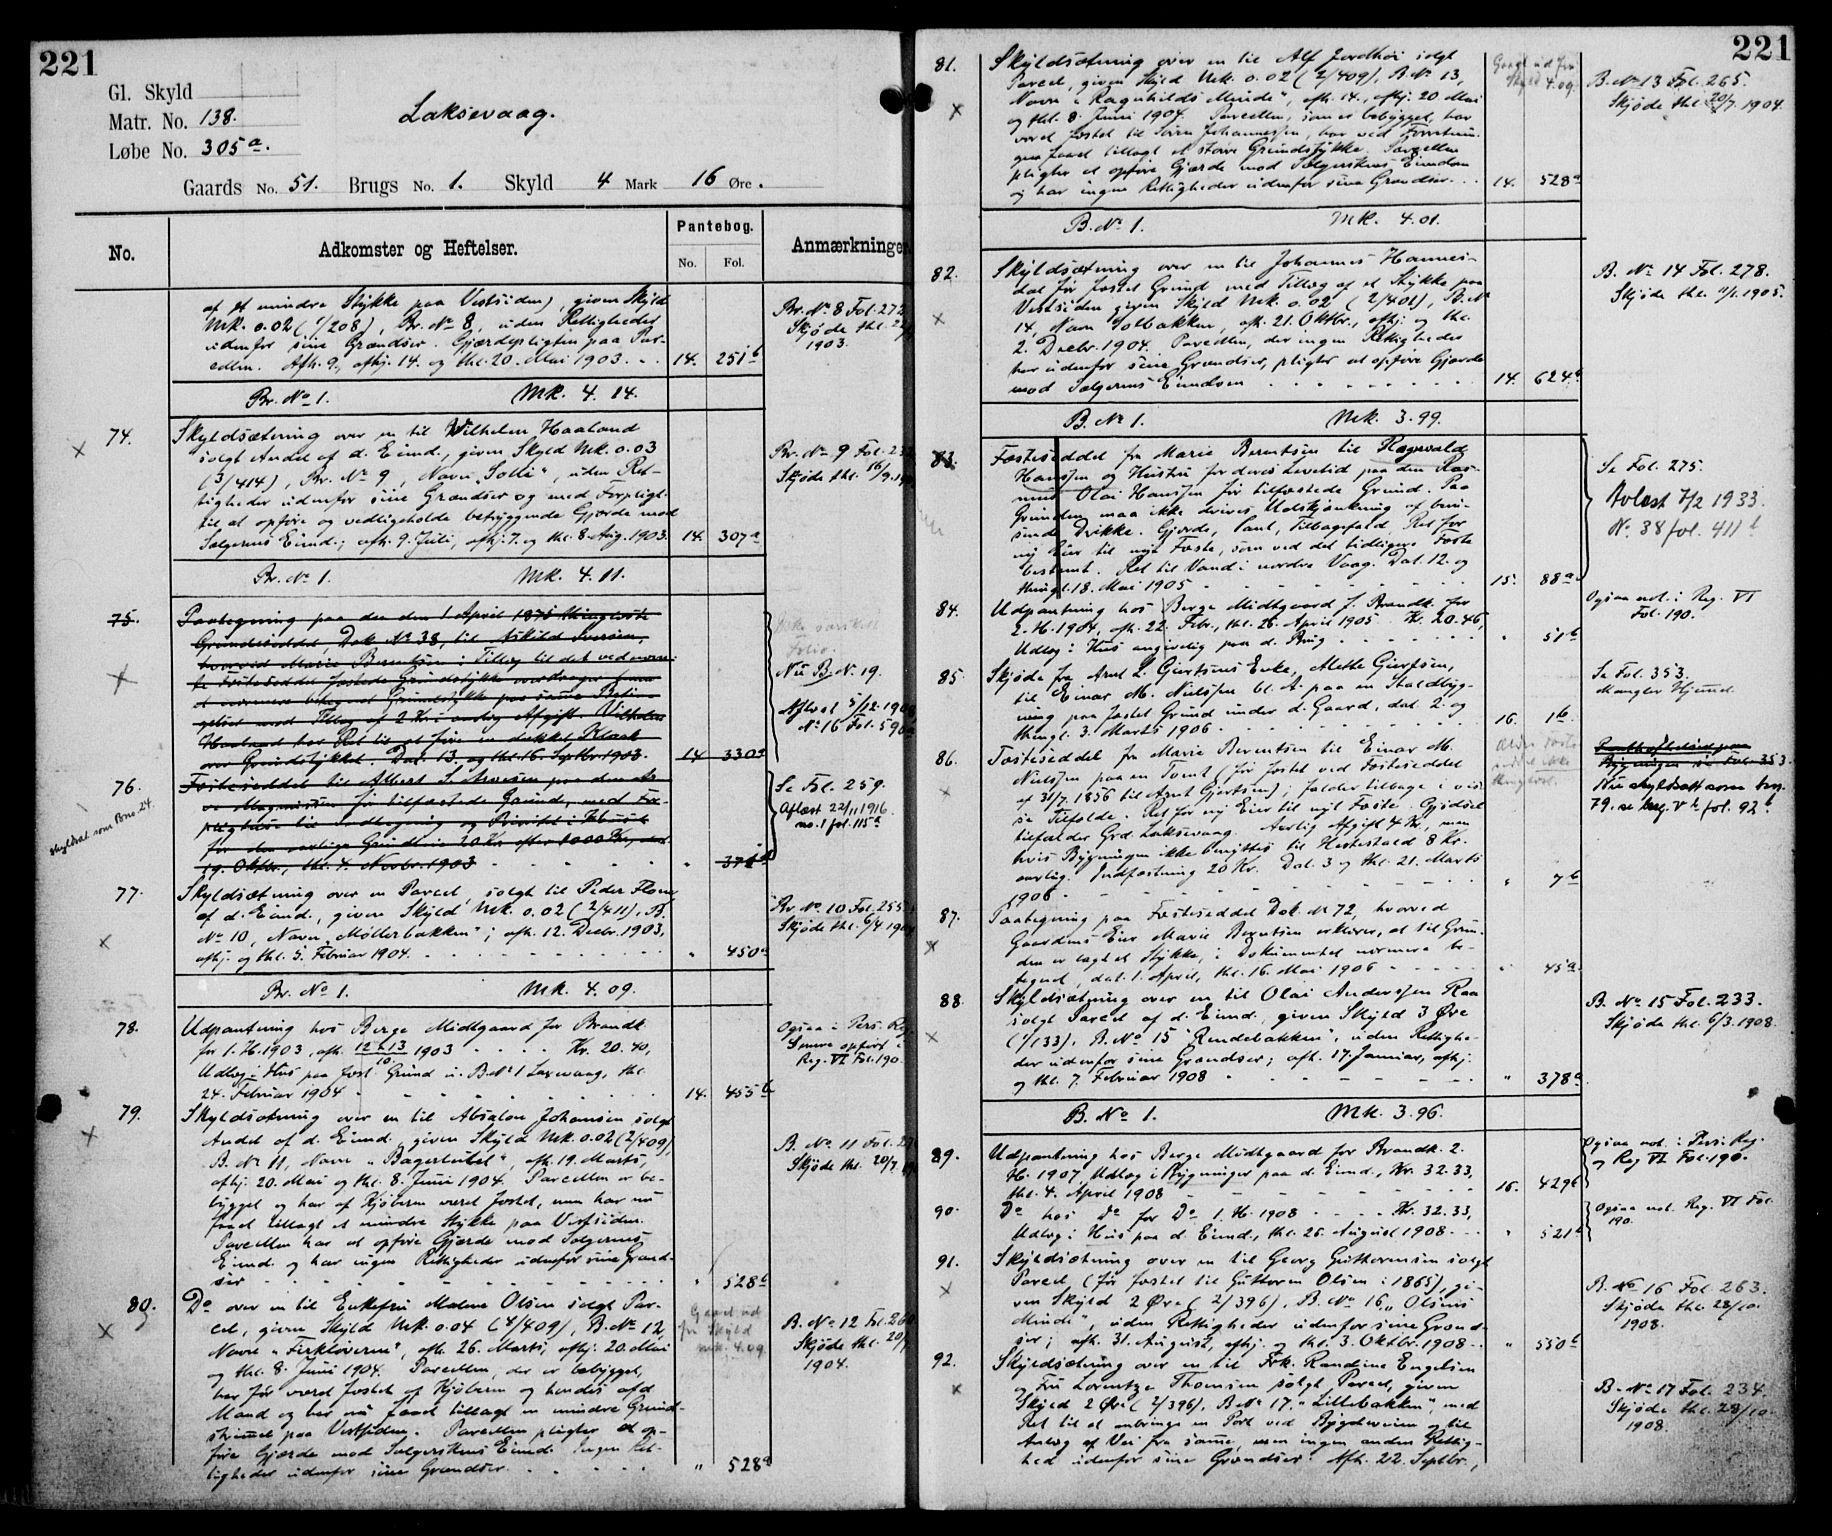 221
Gl. Skyld
Matr. No. 138.
Løbe No. 305 a.
Laksevaag.
Gaards No. 51. Brugs No. 1. Skyld 4 Mark 16 Øre.
No.
Adkomster og Heftelser.
Pantebog.
No. Fol.
Anmærkninger
af et mindre Stykke paa Vestsiden), given Skyld
Mk. 0.02 (1/208), Br. No 8, uden Rettigheder
udenfor sine Grændser. Gjærdepligten paa Par-
cellen. Afh. 9, afhj. 14. og thl. 20. Mai 1903. 14. 251 b
Br. No 8 Fol. 272
Skjøde thl.
1903.
Br. No 1. Mk. 4.14.
74. Skyldsætning over en til Wilhelm Haaland
solgt Andel af d. Eiend., given Skyld Mk. 0.03
(3/414), Br. No 9, Navn "Solli", uden Ret-
tigheder udenfor sine Grændser og med Forpligt.
til at opføre og vedligeholde betryggende Gjærde mod
Sælgerens Eiend.; afh. 9. Juli, afhj. 7. og thl. 8. Aug. 1903. 14. 307 a
Br. No 9 Fol.
Skjøde thl. 16/9
Br. No 1. Mk. 4.11.
75. Paategning paa den den 1 April 1875 thinglæste
Grundseddel, Dok. No 38, til Askild Iversen,
hvorved Marie Berntsen i Tillæg til det ved nævn-
te Festeseddel festede Grundstykke overdrager ham
et nærmere betegnet Grundstykke paa samme Betin-
gelser mod Tillæg af 2 Kr. i aarlig Afgift. Vilhelm
Haaland har Ret til at føre en lukket Kloak
over Grundstykket. Dat. 13. og thl. 16. Septbr 1903. 14 330 a
Folio.
Nu B. N. 19.
Aflæst 5/12 1908
No 16 Fol. 590
76. Festeseddel til Albert
for tilfæstede Grund, med For-
19. Oktbr., thl. 4. Novbr. 1903 " 371
skyldsat som Bno. 24.
Se Fol. 259.
Aflæst 22/11 1916
no. 1 fol. 115 a
77. Skyldsætning over en Parcel, solgt til Peder
af d. Eiend., given Skyld Mk. 0.02 (2/411), B.
No 10, Navn "Møllerbakken"; afh. 12. Decbr. 1903,
afhj. og thl. 5. Februar 1904. " 450 a
Br. No 10 Fol. 255
Skjøde thl. 6/4 190
Br. No 1. Mk. 4.09.
78. Udpantning hos Berge Midtgaard for Brandk.
for 1. H. 1903, afh. 12 & 13/10 1903 Kr. 20.40,
Udlæg i Hus paa fæst. Grund u. B. No 1 Laxevaag, thl.
24. Februar 1904 14. 455 b
Ogsaa i Pers. Reg
Senere opført i
Reg. VI Fol. 190.
79. Skyldsætning over en til Absalon Johansen solgt
Andel af d. Eiend., given Skyld Mk. 0.02 (2/409),
B. No 11, Navn "Bagerhuset", afh. 19. Marts,
afhj. 20. Mai og thl. 8. Juni 1904. Parcellen er be-
bygget og har af Kjøberen været festet, men har nu
faaet tillagt et mindre Stykke paa Vestsiden.
Parcellen har at opføre Gjærde mod Sælgerens
Eiend. og har ingen Rettigheder udenfor sine Grænd-
ser " 528 b
B. No 11 Fol.
Skjøde thl. 20/7
80. Do over en til Enkefru Malene Olsen solgt Par-
cel, given Skyld Mk. 0.04 (4/409), B. No 12,
Navn "Firkløveren", afh. 26. Marts, afhj. 20. Mai
og thl. 8. Juni 1904. Parcellen, der er bebygget,
har før været festet af Kjøberen og hendes afd.
Mand og har nu faaet tillagt en mindre Grund-
strimmel paa Vestsiden. Parcellen pligter at op-
føre Gjærde mod Sælgerskens Eiend. Ingen Ret-
tigheder udenfor sine Grændser " 528 a
Gaaet ud
fra Skyld
mk. 4.09
B. No 12 Fol. 260
Skjøde thl. 20/7
1904.
221
81. Skyldsætning over en til Alf Jordhøi solgt
Parcel, given Skyld Mk. 0.02 (2/409), B. No 13,
Navn "Ragnhilds Minde", afh. 14., afhj. 20. Mai
og thl. 8. Juni 1904. Parcellen, som er bebygget, har
været festet til Søren Johannessen, har ved
gen faaet tillagt et større Grundstykke. Parcellen
pligter at opføre Gjærde mod Sælgerskens Eiendom
og har ingen Rettigheder udenfor sine Grændser. 14. 528 a
Gaaet ud fra
Skyld 4.09.
B. No 13 Fol. 265.
Skjøde thl. 20/7. 1904.
B. No 1. Mk. 4.01.
82. Skyldsætning over en til Johannes Hannes-
dal før festet Grund med Tillæg af et Stykke paa
Vestsiden given Skyld Mk. 0.02 (2/401), B. No
14, Navn Solbakken, afh. 21. Oktbr., afhj. og thl.
2. Decbr. 1904. Parcellen, der ingen Rettigheder
har udenfor sine Grændser, pligter at opføre Gjærde
mod Sælgerens Eiendom 14. 624 b
B. No 14 Fol. 278.
Skjøde thl. 11/1. 1905.
B. No 1. Mk. 3.99.
83. Festeseddel fra Marie Berntsen til Ragnvald
Hanssen og Hustru for deres Levetid paa den Ras-
mus Olai Hanssen før tilfæstede Grund. Paa
Grunden maa ikke drives Udskjænkning af beru-
sende Drikke. Gjærde, Pant, Tilbagefald, Ret for
ny Eier til nyt Feste, som ved det tidligere Feste
bestemt. Ret til Vand i nordre Vaag. Dat. 12. og
thingl. 18. Mai 1905 15. 88 a
Se Fol. 275.
Avlæst 7/2 1933
No. 38 fol. 411 b
84. Udpantning hos Berge Midtgaard f. Brandk. for
2. H. 1904, afh. 22. Febr., thl. 26. April 1905 Kr. 20.46,
Udlæg i Hus angivelig paa d. Brug " 51 b
Ogsaa not. i Reg. VI
Fol. 190.
85. Skjøde fra Arnt L. Gjertsens Enke, Mette Gjertsen,
til Einar M. Nielssen bl. A. paa en Staldbyg-
ning paa festet Grund under d. Gaard, dat. 2. og
thingl. 31 Marts 1906 16. 1 b
Se Fol. 353.
Mangler Hjemmel.
86. Festeseddel fra Marie Berentsen til Einar M.
Nielssen paa en Tomt (før festet ved Festeseddel
af 31/7. 1856 til Arnt Gjertsen); falder tilbage i vis-
se Tilfælde. Ret for ny Eier til nyt Feste. Gjødsel
tilfalder Grd. Laksevaag. Aarlig Afgift 4 Kr., men
hvis Bygningen ikke benyttes til Hestestald 8 Kr.
aarlig. Indfæstning 20 Kr. Dat. 3 og thl. 21. Marts
1906 " 7 b
Nu skyldsatt som bno.
79. se reg. V b fol. 92 b.
87. Paategning paa Festeseddel Dok. No 72, hvorved
Gaardens Eier Marie Berntsen erklærer, at til Grun-
den er lagt et Stykke, i Dokumentet nærmere be-
tegnet, dat. 1. April, thl. 16. Mai 1906 " 45 a
88. Skyldsætning over en til Olai Anderssen Raa
solgt Parcel af d. Eiend., given Skyld 3 Øre
(1/133), B. No 15 "Rindebakken", uden Rettighe-
der udenfor sine Grændser; afh. 17. Januar, afhj.
og thl. 7. Februar 1908 " 378 a
B. No 15 Fol. 233.
Skjøde thl. 6/3. 1908.
B. No 1. Mk. 3.96.
89. Udpantning hos Berge Midtgaard for Brandk. 2.
H. 1907. Udlæg i Bygninger paa d. Eiend., Kr. 32.33,
thl. 4. April 1908 16. 429 b
Ogsaa not. i Pers. Reg.
og Reg VI Fol. 190.
90. Do hos do for Do 1. H. 1908 Kr. 32.33,
Udlæg i Hus paa d. Eiend., thl. 26. August 1908 " 521 b
Ogsaa not. Reg. VI Fol.
190.
91. Skyldsætning over en til Georg Guttormsen solgt
Parcel, (før festet til Guttorm Olsen i 1865), gi-
ven Skyld 2 Øre (2/396), B. No 16 "Olsens
Minde", uden Rettigheder udenfor sine Grænd-
ser; afh. 31. August, afhj. og thl. 3. Oktbr. 1908 " 550 b
B. No 16 Fol. 263.
Skjøde thl. 28/10.
1908.
92. Skyldsætning over en til Frk. Randine Engelsen
og Fru Lorentze Thomsen solgt Parcel, given
Skyld 2 Øre (2/396), B. No 17. "Lillebakken", med
Ret til at anbringe en Port ved Bygdeveien og til
Anlæg af Vei fra samme, men ingen anden Rettig-
hed udenfor sine Grændser. Afh. 22. Septbr.,
B. No 17 Fol. 234.
Skjøde thl. 28/10
1908.